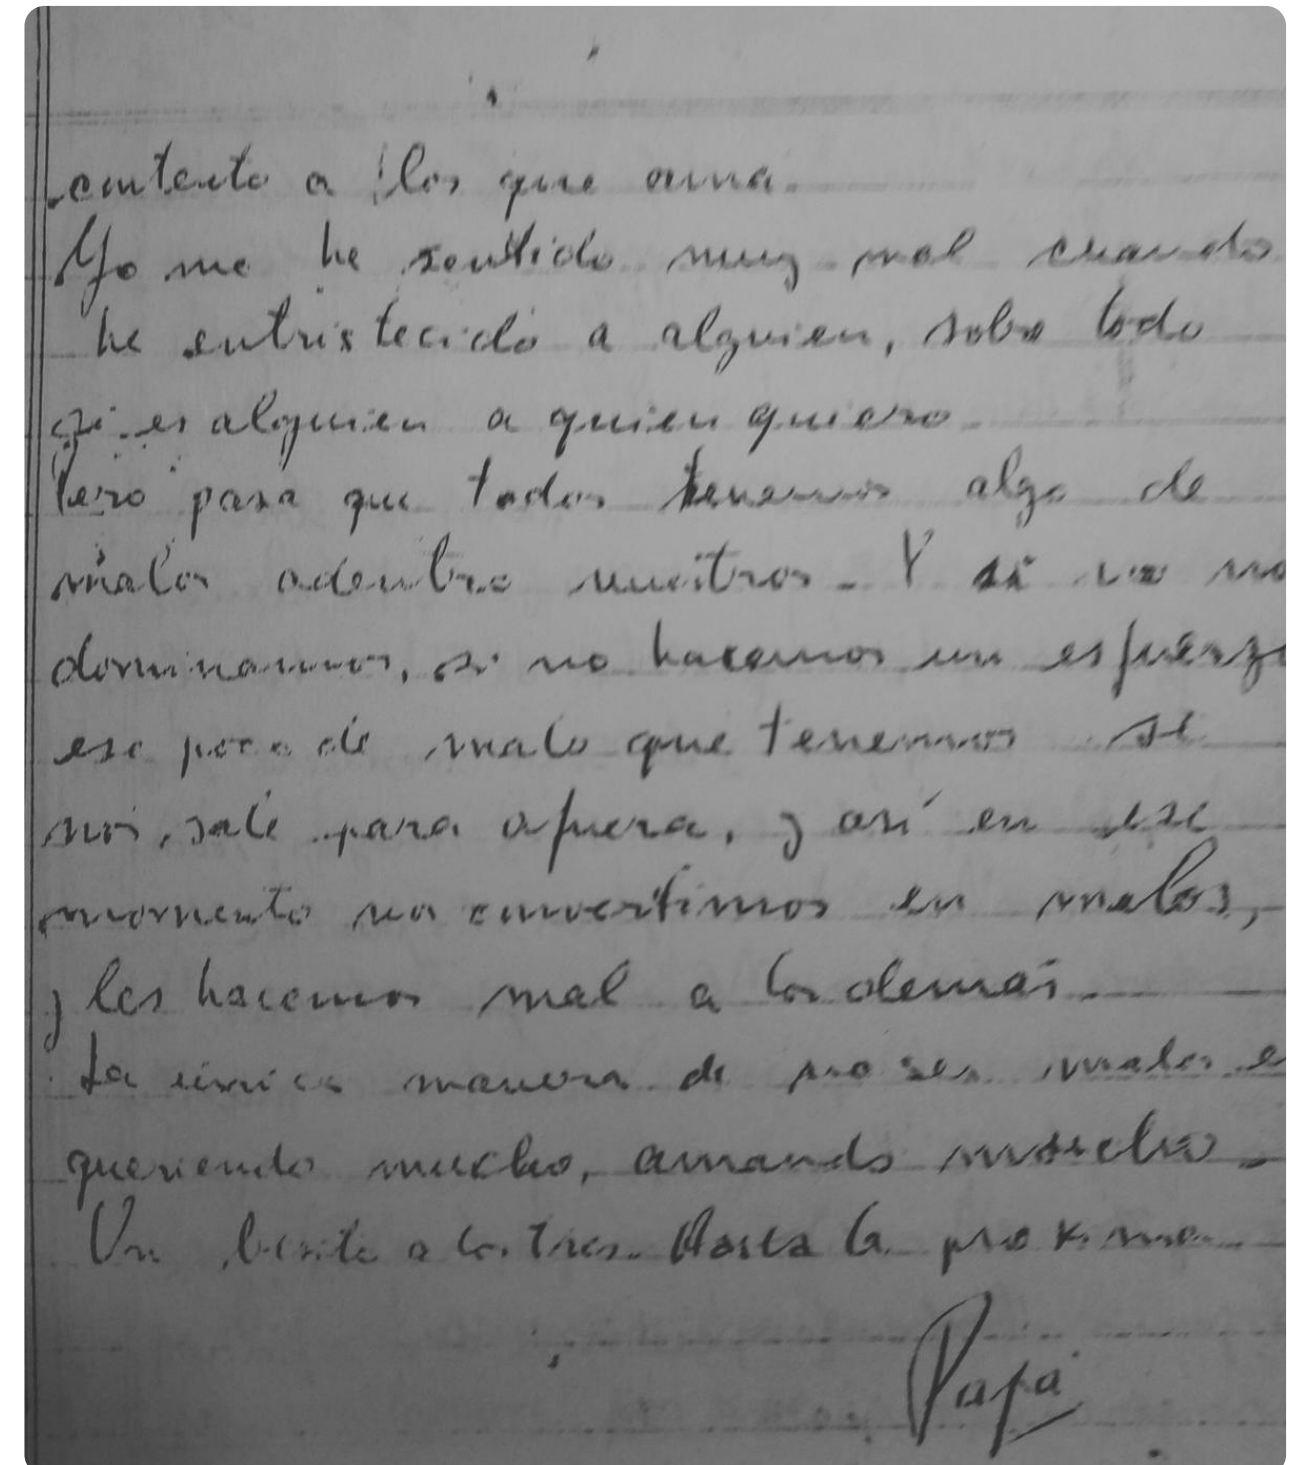 contento a los que ama.
Yo me he sentido muy mal cuando
he entristecido a alguien, sobre todo
si es alguien a quien quiero.
Pero pasa que todos tenemos algo de
malos adentro nuestros. Y si no no
dominamos, si no hacemos un esfuerzo
ese poco de malo que tenemos se
nos sale para afuera, y así en ese
momento nos convertimos en malos,
y les hacemos mal a los demás.
La única manera de no ser malos e
queriendo mucho, amando mucho.
Un besito a los tres. Hasta la proxima
Papá